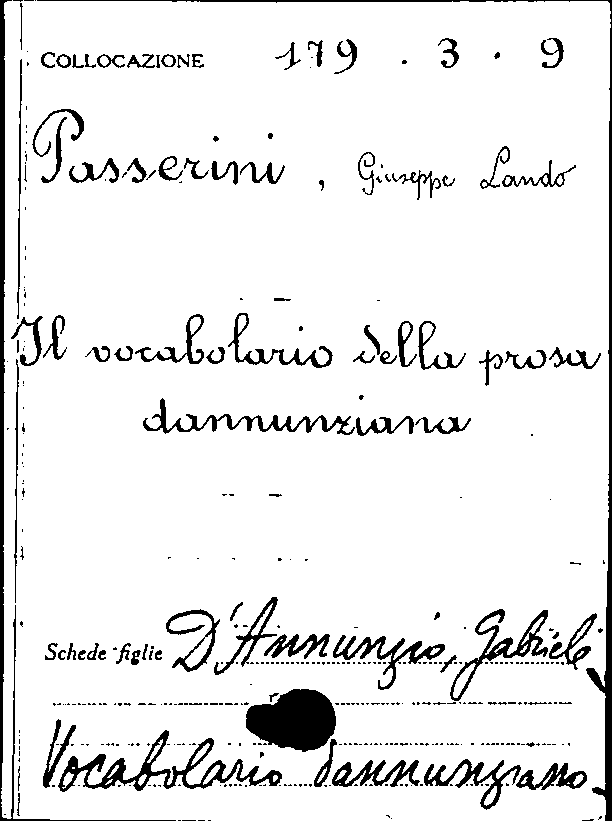 COLLOCAZIONE 179 . 3 . 9
Passerini, Giuseppe Lando
Il vocabolario della prosa
dannunziana
Schede figlie D'Annunzio, Gabriele
Vocabolario dannunziano.